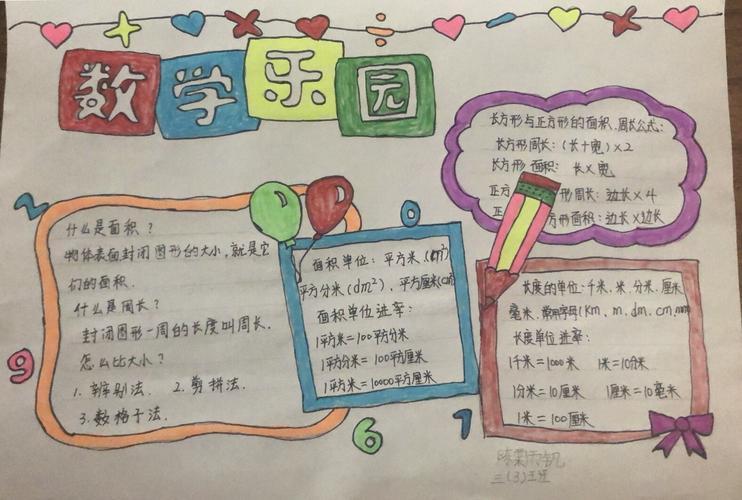 数学乐园
长方形与正方形的面积、周长公式:
长方形周长:(长+宽)×2
长方形面积: 长×宽
正 形周长:边长×4
方形面积:边长×边长
2
什么是面积?
物体表面封闭图形的大小,就是它
们的面积.
什么是周长?
封闭图形一周的长度叫周长.
怎么比大小?
1. 辨别法. 2. 剪拼法.
3. 数格子法.
9
6
0
面积单位: 平方米(m²)
平方分米(dm²)、平方厘米(cm²)
面积单位进率:
1平方米=100平方分米
1平方分米=100平方厘米
1平方米=10000平方厘米
1
长度的单位:千米、米、分米、厘米
毫米、常用字母(km、m、dm、cm、mm)
长度单位进率:
1千米=1000米 1米=10分米
1分米=10厘米 1厘米=10毫米
1米=100厘米
三(3)班